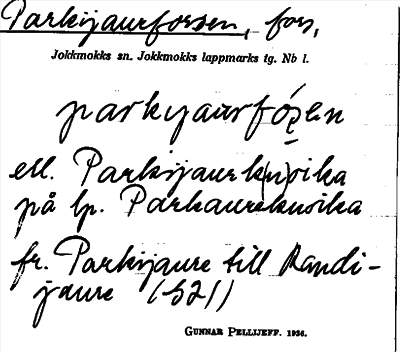 Parkijaurforsen, fors,
Jokkmokks sn. Jokkmokks lappmarks tg. Nb l.
parkyaurfóṣen
ell. Parkijaurk(n)oika
på lp. Parkaurekuoika
fr. Parkijaure till Randi-
jaure (S21)
GUNNAR PELLIJEFF. 1936.